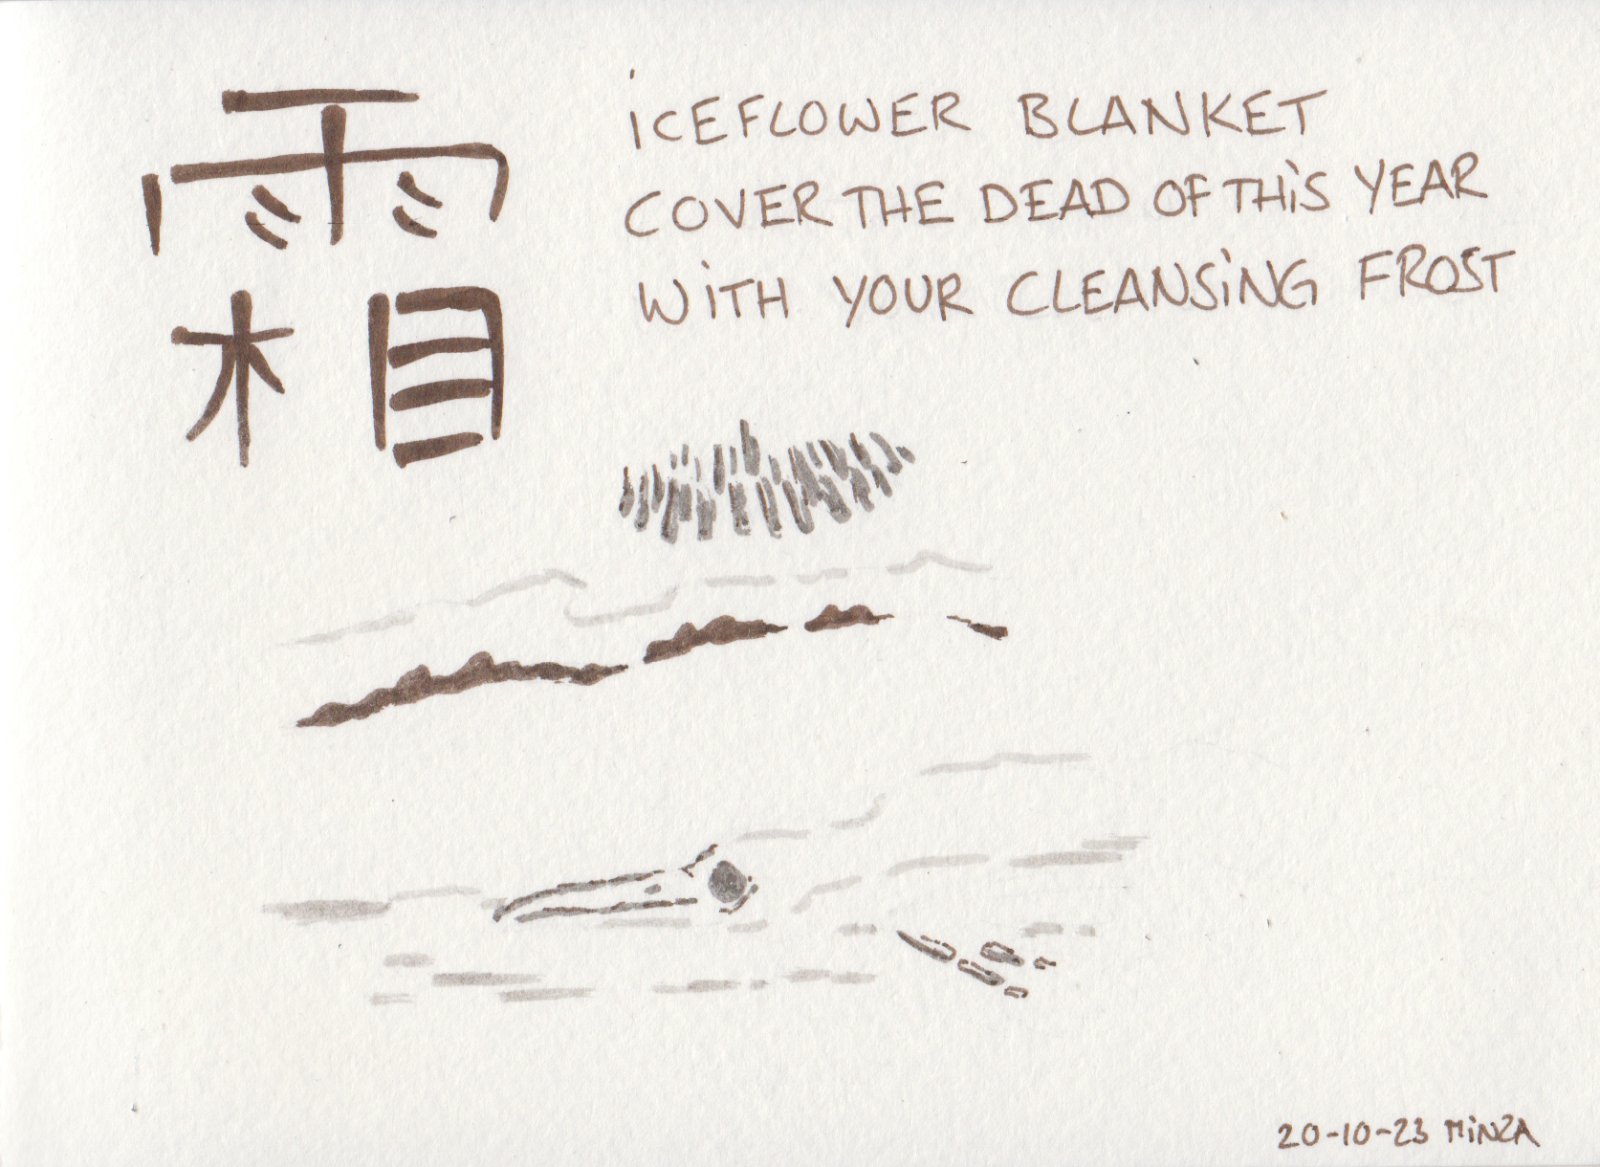 霜
iCEFLOWER BLANKET
COVER THE DEAD OF THiS YEAR
WiTH YOUR CLEANSiNG FROST
20-10-23 MiNZA